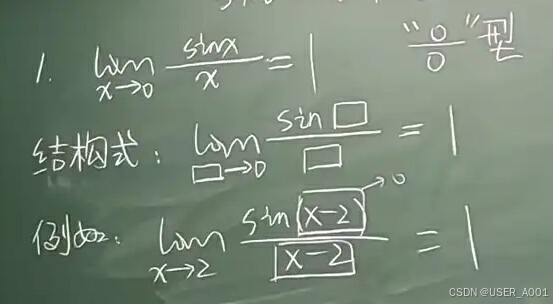 1. lim x→0 sinx/x = 1 "0/0"型
结构式: lim □→0 sin□/□ = 1
例如: lim x→2 sin(x-2)/x-2 = 1 →0
CSDN @USER_A001